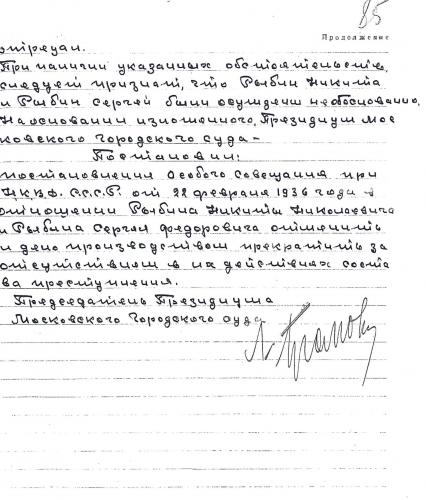 85
Продолжение
отрецал.
При наличии указанных обстоятельств,
следует признать, что Рыбин Никита
и Рыбин Сергей были осуждены необосновано.
На основании изложенного, Президиум Мос
ковского Городского суда –
Постановил:
постановления Особого Совещания при
Н.К.В.Д. С.С.С.Р. от 22 февраля 1936 года в
отношении Рыбина Никиты Николаевича
и Рыбина Сергея Федоровича отменить
и дело производством прекратить за
отсутствием в их действиях соста
ва преступления.
Председатель Президиума
Московского Городского суда